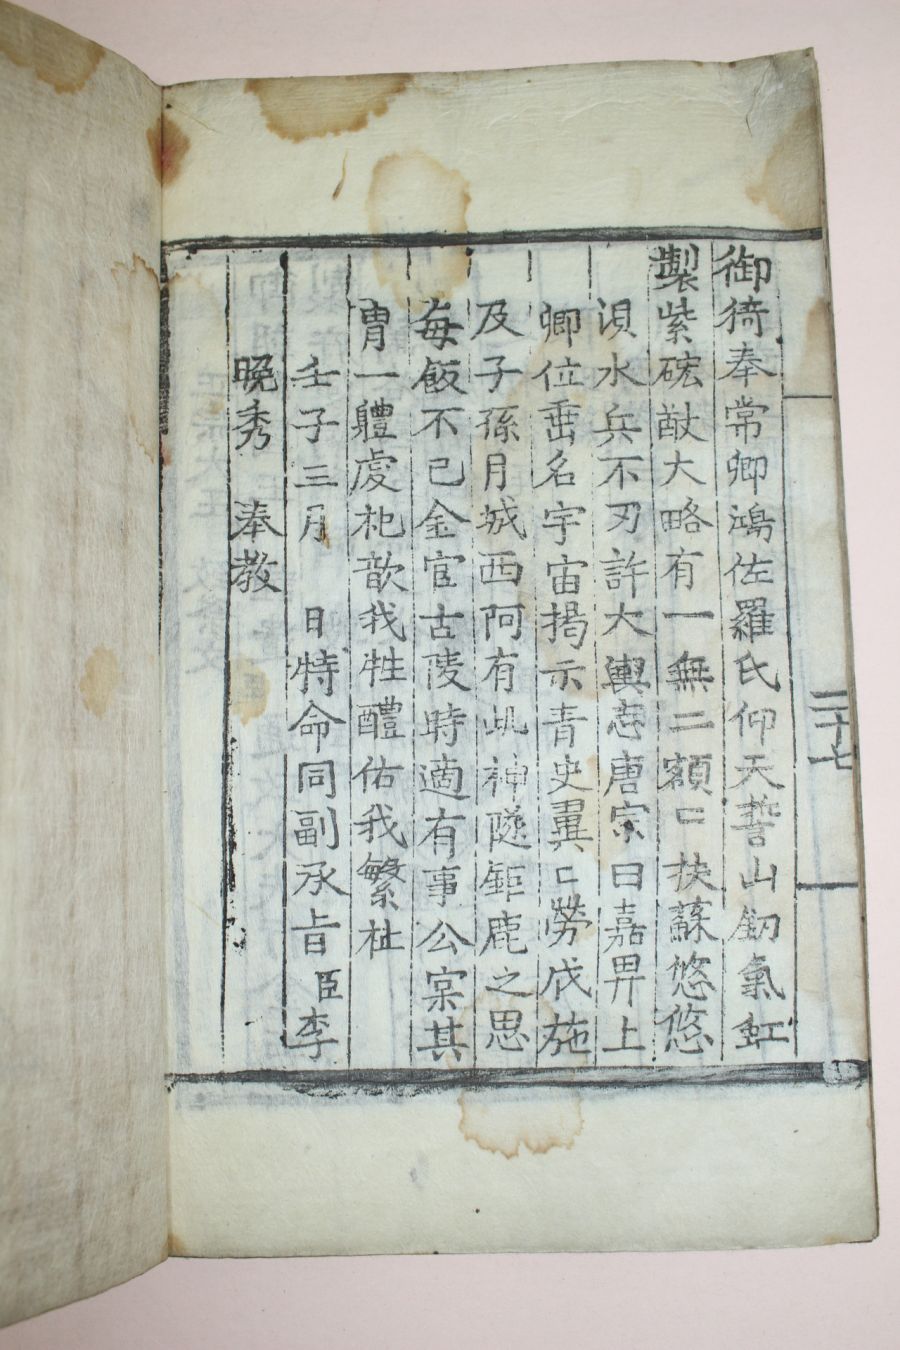 御猗奉常卿鴻佐羅氏仰天誓山釰氣虹
製紫硡猷大略有一無二額匸扶蘇悠悠
浿水兵不刃許大輿志唐宗曰嘉畀上
卿位垂名宇宙揭示青史翼匸勞伐施
及子孫月城西阿有屹神隧鉅鹿之思
每飯不已金官古陵時適有事公寀其
胄一軆虔祀歆我牲醴佑我繁祉
壬子三月 日特命同副承旨臣李
晩秀 奉教
二十七